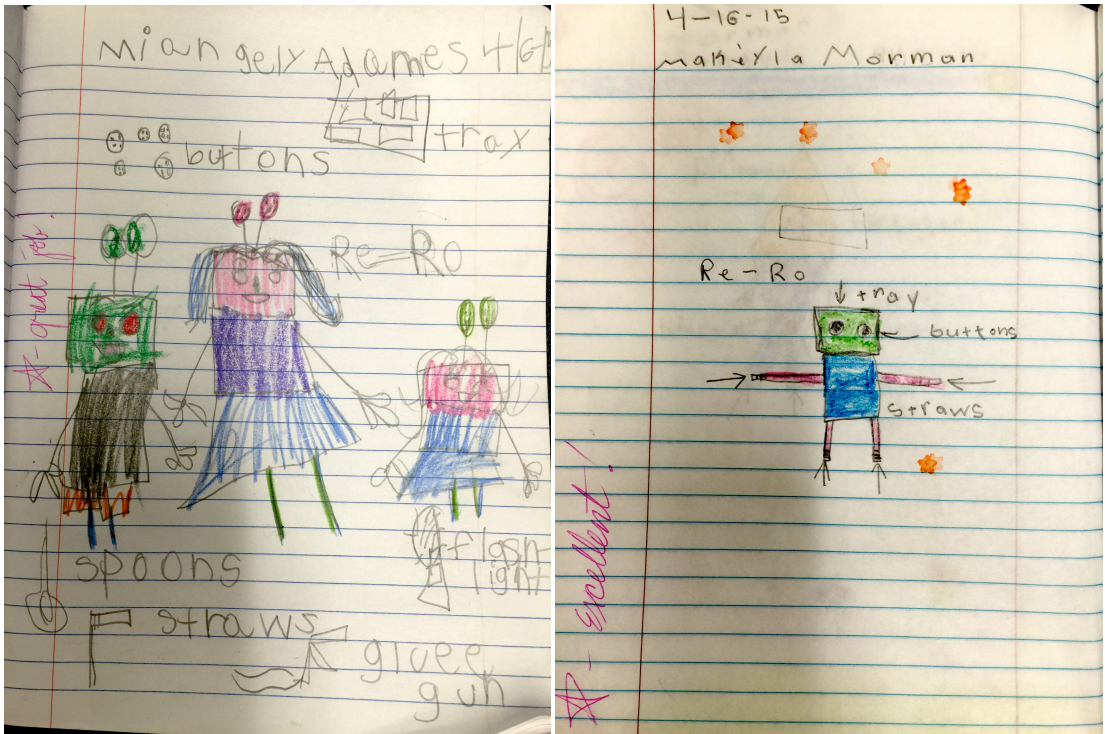 Miangely Adames 4/6/
trax
buttons
Re-Ro
☆- great job!
flash
light
spoons
straws
gluee
gun
4-16-15
makiyla Morman
Re-Ro
tray
buttons
straws
☆- excellent!